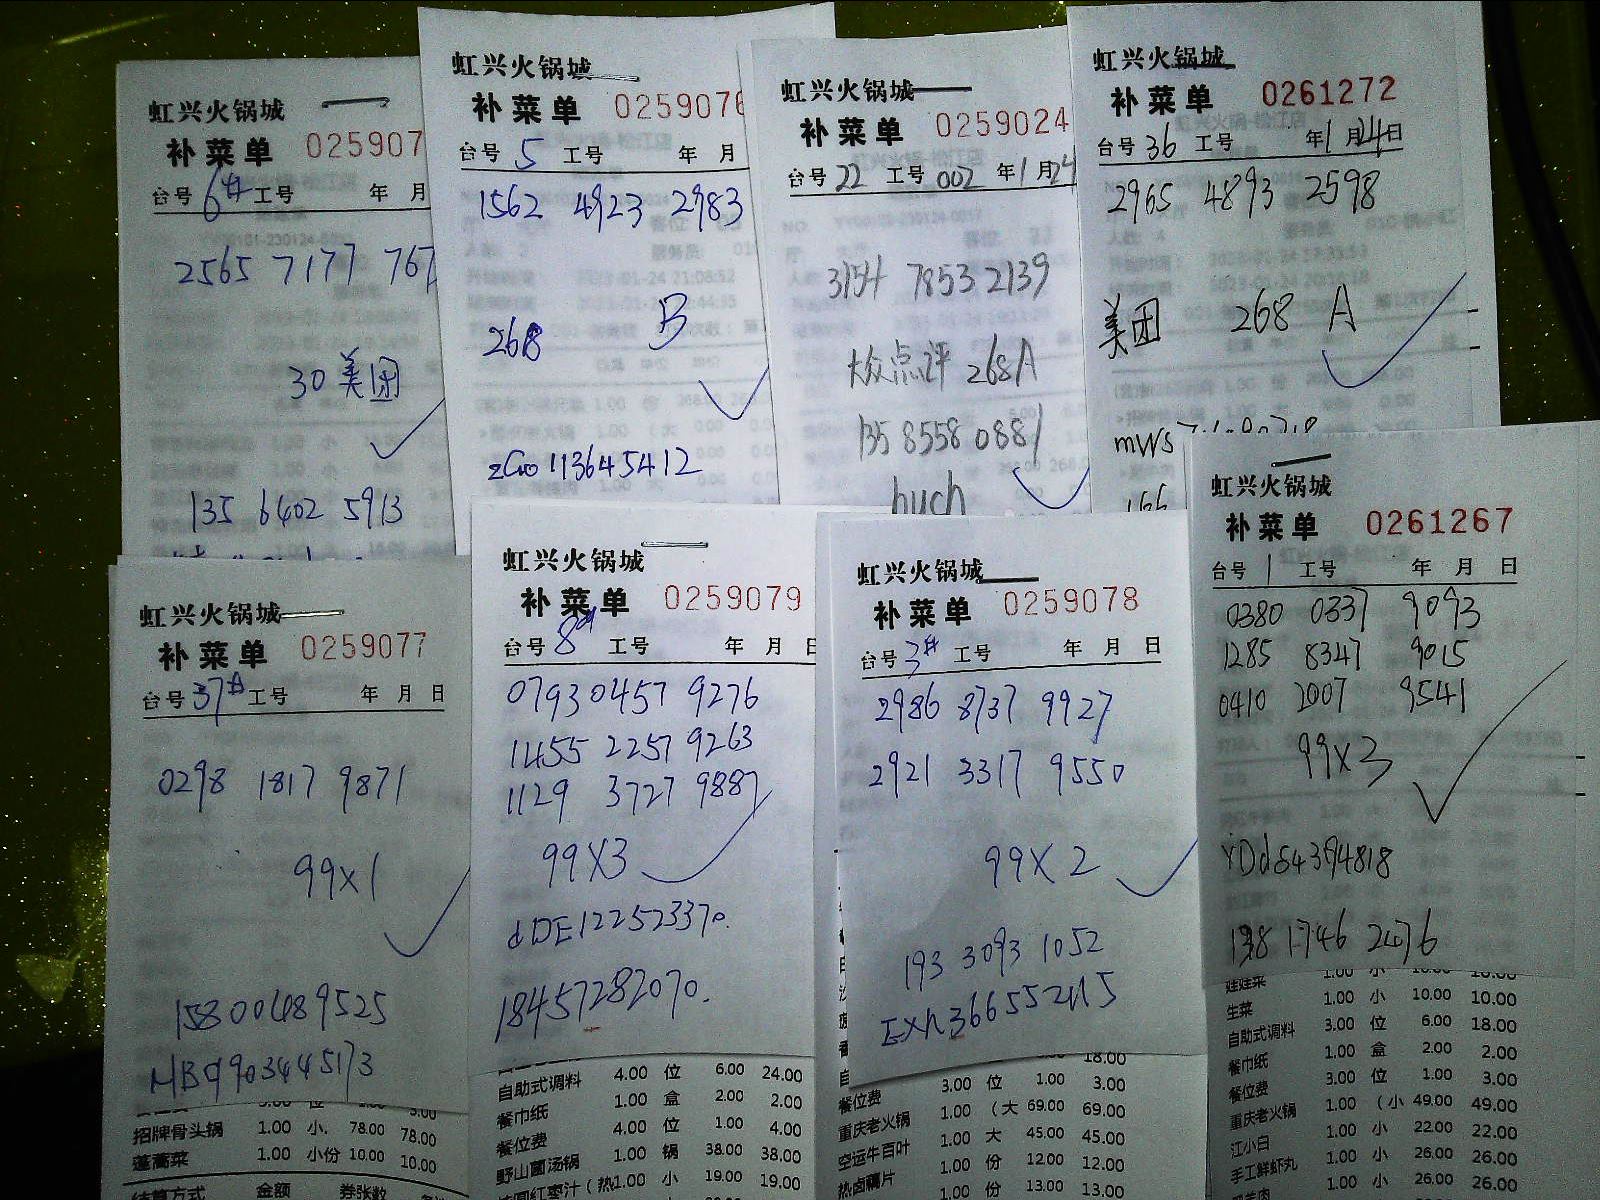 虹兴火锅城
补菜单 025907
台号 6# 工号 年 月
2565 7177 767
30 美团
135 6402 5913
虹兴火锅城
补菜单 0259076
台号 5 工号 年 月
1562 4923 2983
268 B
zGo 113645412
虹兴火锅城
补菜单 0259024
台号 22 工号 002 年 1 月 24
3154 7853 2139
大众点评 268A
135 8558 0881
虹兴火锅城
补菜单 0261272
台号 36 工号 年 1 月 24 日
2965 4893 2598
美团 268 A
虹兴火锅城
补菜单 0259077
台号 37# 工号 年 月 日
0298 1817 9871
99X1
HBq903445173
招牌骨头锅 1.00 小 78.00 78.00
蓬蒿菜 1.00 小份 10.00 10.00
结算方式 金额 券张数
虹兴火锅城
补菜单 0259079
台号 8# 工号 年 月 日
0793 0457 9276
1455 2257 9263
1129 3727 9887
99X3
dDE122523370.
18457282070.
自助式调料 4.00 位 6.00 24.00
餐巾纸 1.00 盒 2.00 2.00
餐位费 4.00 位 1.00 4.00
野山菌汤锅 1.00 锅 38.00 38.00
桂圆红枣汁（热 1.00 小 19.00 19.00
虹兴火锅城
补菜单 0259078
台号 3# 工号 年 月 日
2986 8737 9927
2921 3317 9550
99X2
193 3093 1052
18.00
餐位费 3.00 位 1.00 3.00
重庆老火锅 1.00 （大 69.00 69.00
空运牛百叶 1.00 大 45.00 45.00
热卤藕片 1.00 份 12.00 12.00
1.00 份 13.00 13.00
虹兴火锅城
补菜单 0261267
台号 1 工号 年 月 日
0380 0337 9093
1285 8347 9015
0410 2007 9541
99X3
138 1746 2476
娃娃菜 1.00 小 10.00 10.00
生菜 1.00 小 10.00 10.00
自助式调料 3.00 位 6.00 18.00
餐巾纸 1.00 盒 2.00 2.00
餐位费 3.00 位 1.00 3.00
重庆老火锅 1.00 （小 49.00 49.00
江小白 1.00 小 22.00 22.00
手工鲜虾丸 1.00 小 26.00 26.00
1.00 小 26.00 26.00